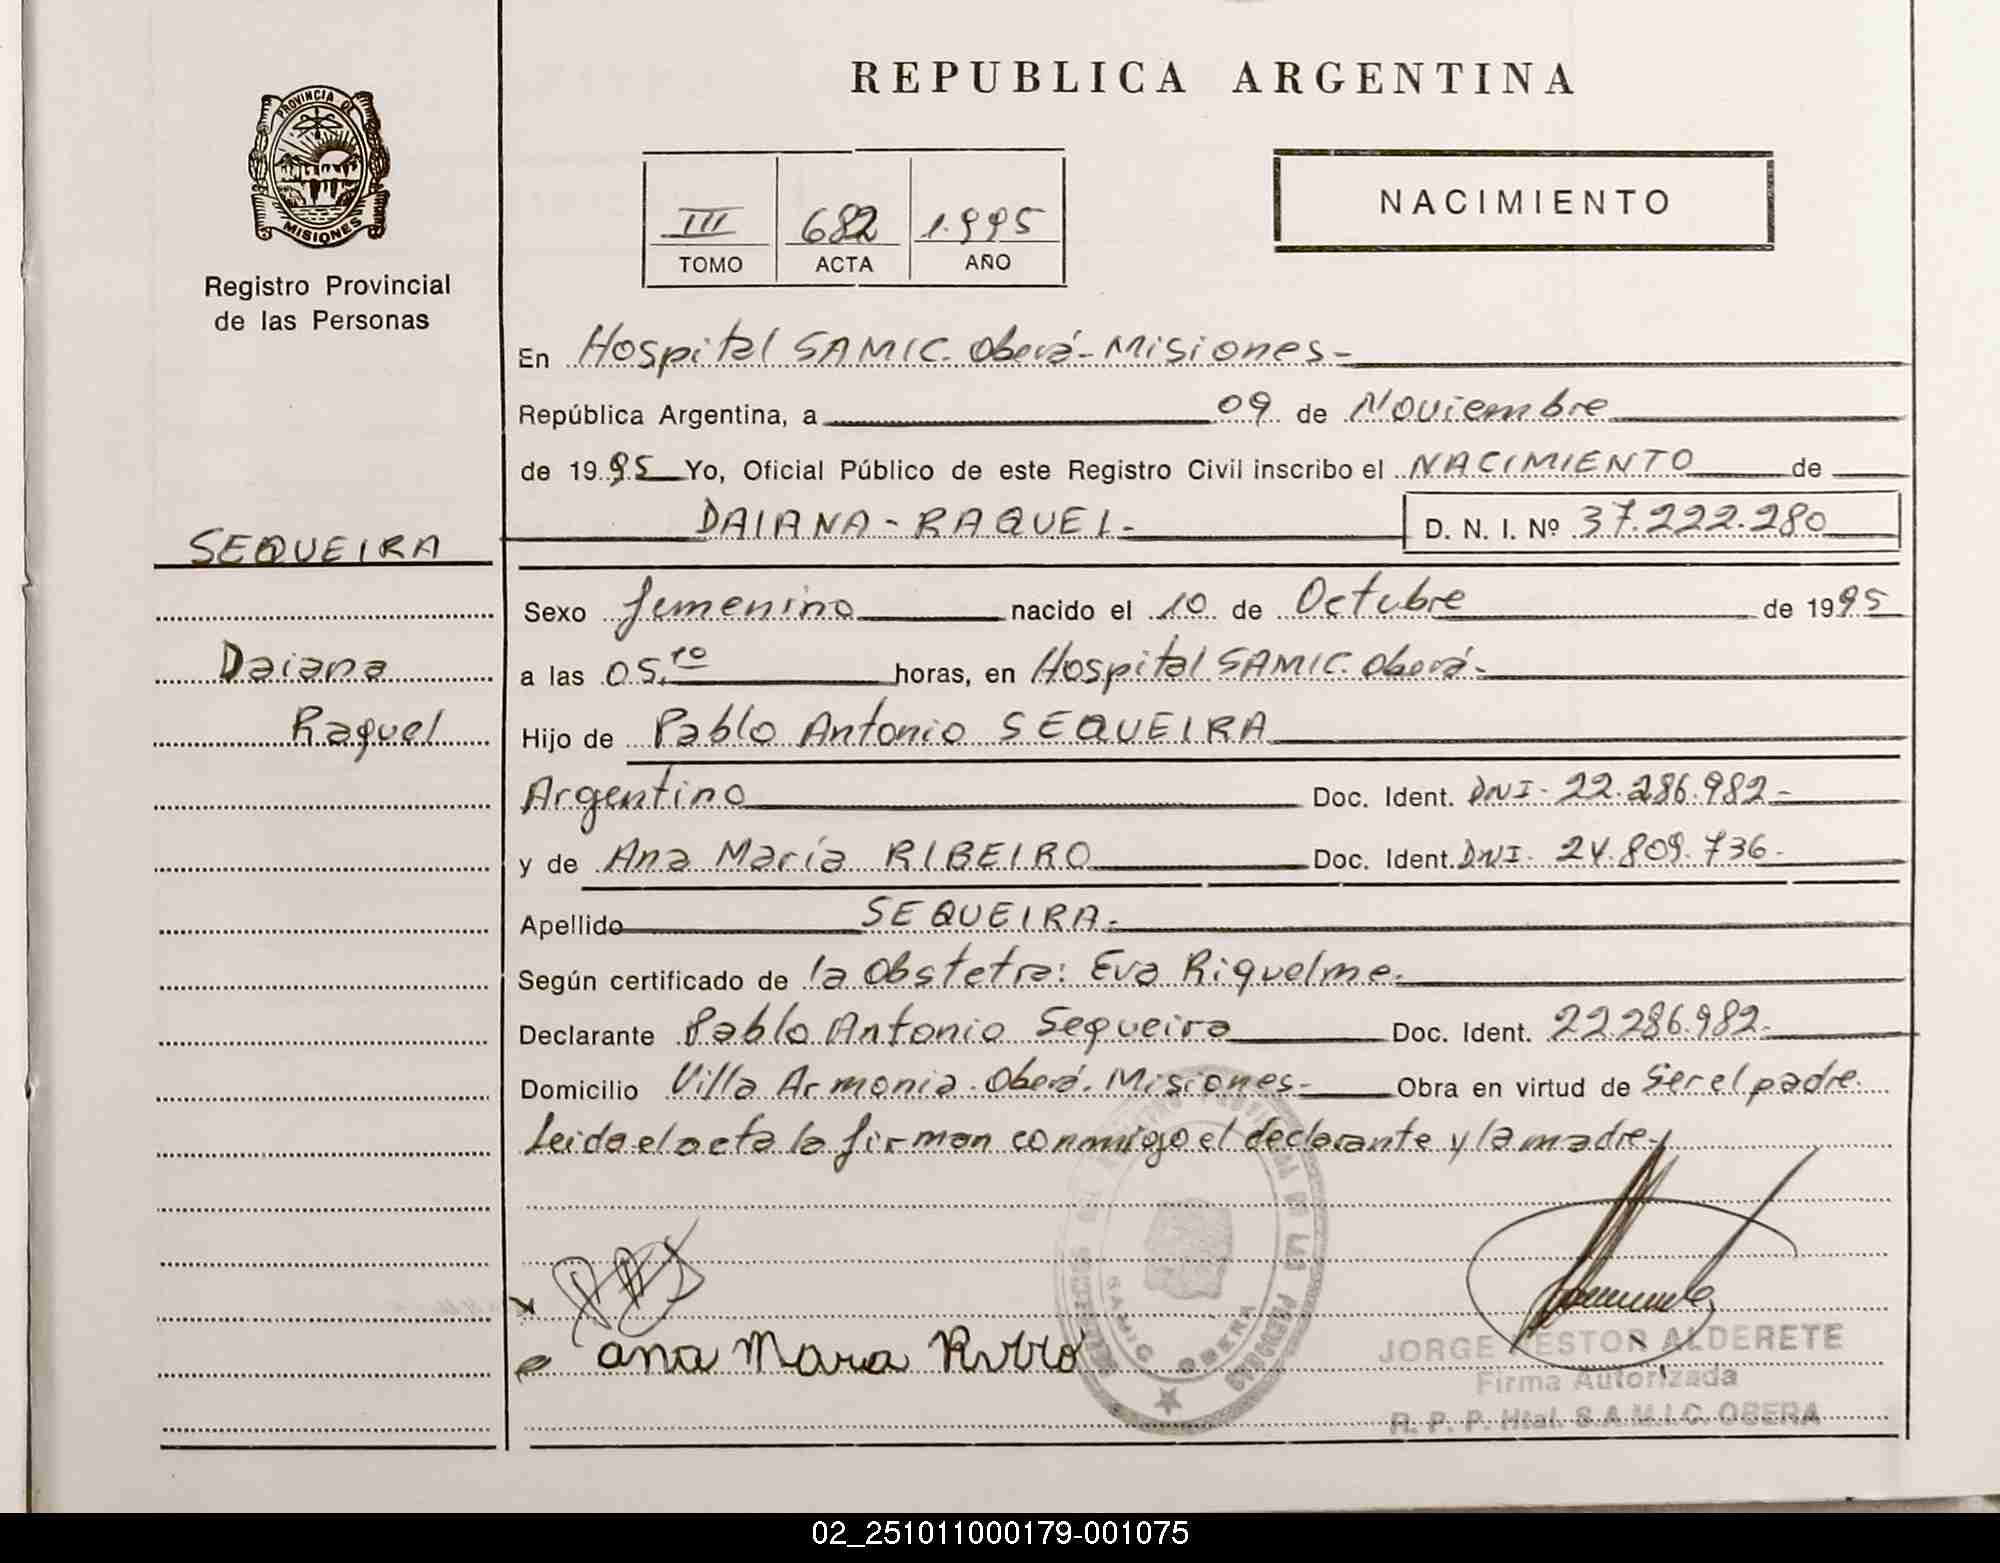 REPUBLICA ARGENTINA
PROVINCIA DE
MISIONES
Registro Provincial
de las Personas
III 682 1.995
TOMO ACTA AÑO
NACIMIENTO
En Hospital SAMIC. Oberá-Misiones-
República Argentina, a 09 de Noviembre
de 1995 Yo, Oficial Público de este Registro Civil inscribo el NACIMIENTO de
DAIANA-RAQUEL- D. N. I. Nº 37.222.280
SEQUEIRA
Daiana
Raquel
Sexo femenino nacido el 10 de Octubre de 1995
a las 05.10 horas, en Hospital SAMIC. Oberá-
Hijo de Pablo Antonio SEQUEIRA
Argentino Doc. Ident. DNI- 22.286.982-
y de Ana María RIBEIRO Doc. Ident. DNI- 24.809.736-
Apellido SEQUEIRA-
Según certificado de la Obstetra: Eva Riquelme.
Declarante Pablo Antonio Sequeira Doc. Ident. 22.286.982-
Domicilio Villa Armonia. Oberá. Misiones- Obra en virtud de ser el padre.
Leida el acta la firman conmigo el declarante y la madre-
ana Mara
JORGE NESTOR ALDERETE
Firma Autorizada
R. P. P. Htal. S.A.M.I.C. OBERA
02_251011000179-001075